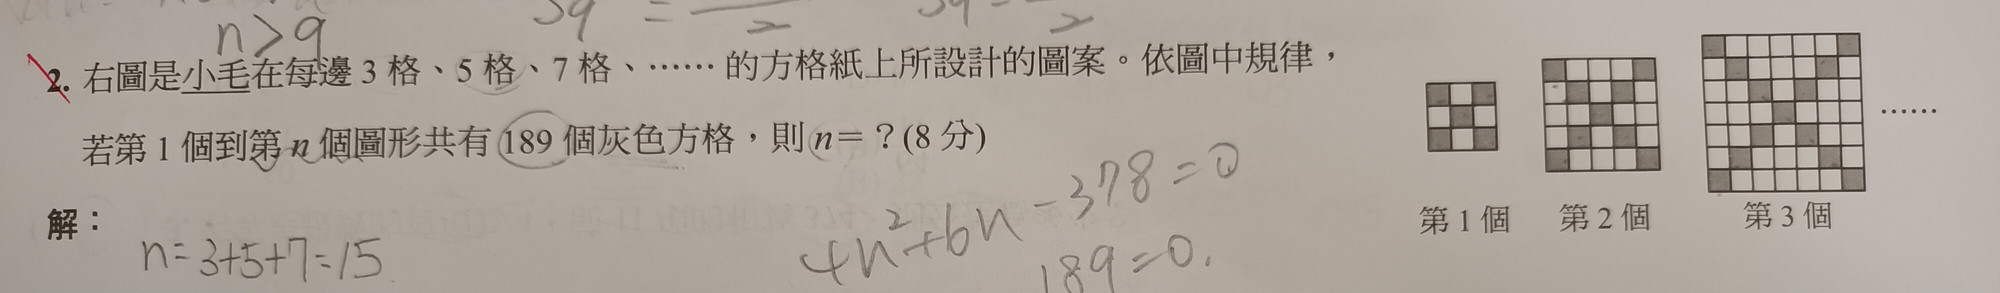 n>9
2. 右圖是小毛在每邊 3 格、5 格、7 格、…… 的方格紙上所設計的圖案。依圖中規律，
若第 1 個到第 n 個圖形共有 189 個灰色方格，則 n=？(8 分)
……
第 1 個 第 2 個 第 3 個
解：
n=3+5+7=15
4n²+6n-378=0
189=0.